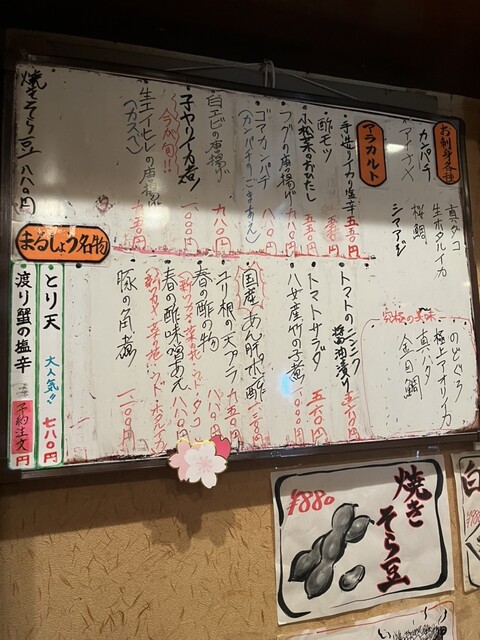 お刺身各種
真ダコ
カンパチ
生ホタルイカ
アイナメ
桜鯛
シマアジ
究極の美味
のどぐろ
極上アオリイカ
真ハタ
金目鯛
アラカルト
手造りイカの塩辛 五五〇円
酢モツ
小松菜のおひたし 五五〇円
フグの唐揚げ 八八〇円
ゴマカンパチ
(カンパチのごまあえ)
白エビの唐揚げ 九八〇円
子ヤリイカ煮
(今が旬!!)
生エイヒレの唐揚
(カスベ)
焼きそら豆 八八〇円
トマトのニンニク
醤油漬け
トマトサラダ 五六〇円
八女産竹の子煮 一、〇〇〇円
国産あん肝ポン酢
ユリ根の天プラ 九五〇円
春の酢の物
春の酢味噌あえ
豚の角煮 一、一〇〇円
まるしょう名物
とり天 大人気!! 七八〇円
渡り蟹の塩辛 予約注文 円
焼き
そら豆
¥880
白